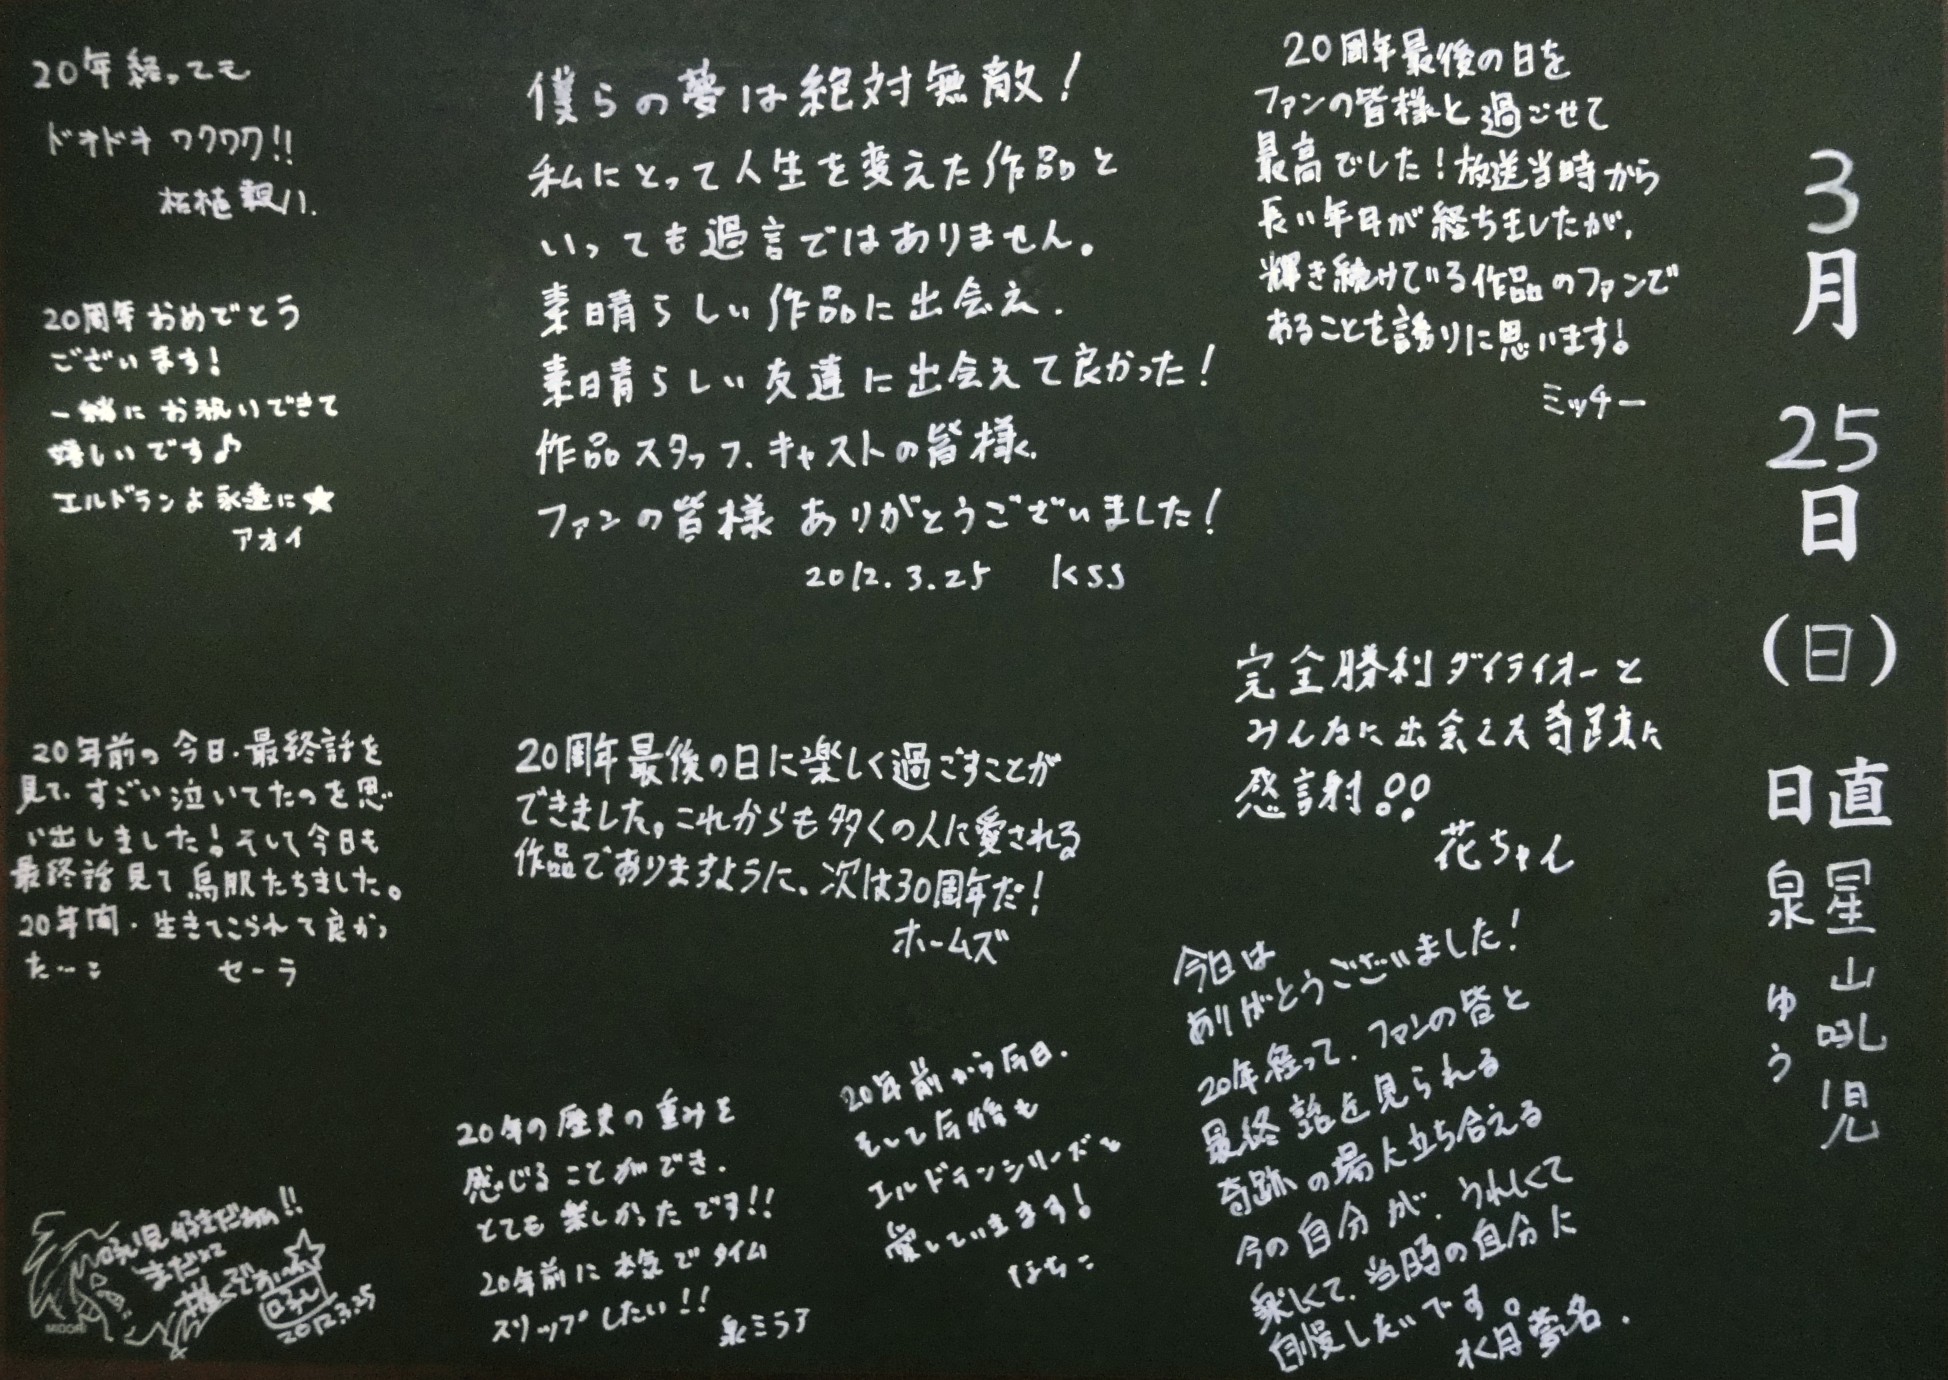 3月25日(日)
日直
星山吼児
日泉ゆう
20周年最後の日を
ファンの皆様と過ごせて
最高でした！放送当時から
長い年月が経ちましたが、
輝き続けている作品のファンで
あることを誇りに思います！
ミッチー
僕らの夢は絶対無敵！
私にとって人生を変えた作品と
いっても過言ではありません。
素晴らしい作品に出会え、
素晴らしい友達に出会えて良かった！
作品スタッフ、キャストの皆様、
ファンの皆様 ありがとうございました！
2012.3.25 KSS
20年経っても
ドキドキ ワクワク!!
柘植
20周年おめでとう
ございます！
一緒にお祝いできて
嬉しいです♪
エルドランよ永遠に★
アオイ
完全勝利ダイテイオーと
みんなに出会えた奇跡に
感謝!!
花ちゃん
20周年最後の日に楽しく過ごすことが
できました。これからも多くの人に愛される
作品でありますように、次は30周年だ！
ホームズ
20年前の今日、最終話を
見て、すごい泣いてたのを思
い出しました！そして今日も
最終話見て鳥肌たちました。
20年間、生きてこられて良かっ
た…
セーラ
今日は
ありがとうございました！
20年経って、ファンの皆と
最終話を見られる
奇跡の場に立ち合える
今の自分が、うれしくて
楽しくて、当時の自分に
自慢したいです。
水月夢名.
20年前から今日、
そして今後も
エルドランシリーズを
愛しています！
はちこ
20年の歴史の重みを
感じることができ、
とても楽しかったです!!
20年前に本気でタイム
スリップしたい!!
泉ミラア
吼児好きだぁぁ!!
まだまだ
描くぞぉぉ☆
2012.3.25
MIDORI